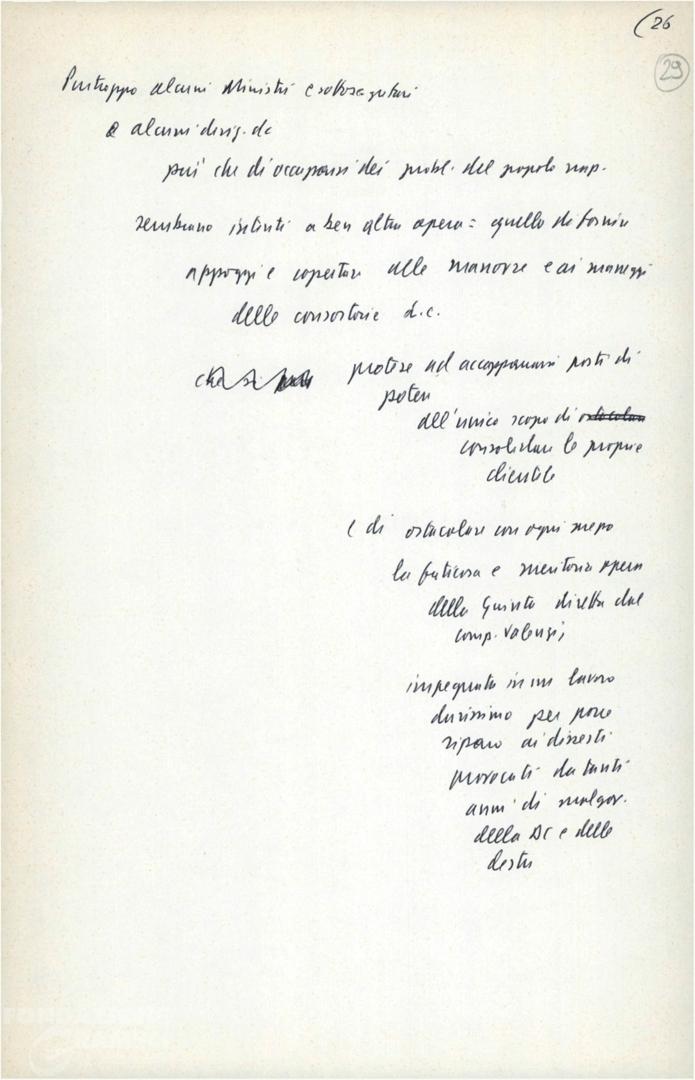 (26
29
Purtroppo alcuni Ministri e sottosegretari
e alcuni dirig. dc
più che di occuparsi dei probl. del popolo nap.
sembrano intenti a ben altra opera: quella di fornire
appoggi e coperture alle manovre e ai maneggi
delle consorterie d.c.
che si
protese ad accaparrarsi posti di
potere
all'unico scopo di ostacolare
consolidare le proprie
clientele
e di ostacolare con ogni mezzo
la faticosa e meritoria opera
della Giunta diretta dal
comp. Valenzi,
impegnata in un lavoro
durissimo per porre
riparo ai dissesti
provocati da tanti
anni di malgov.
della DC e delle
destre